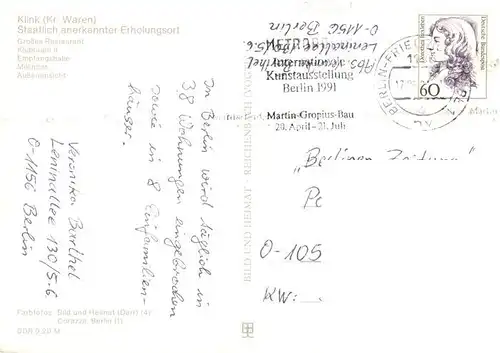 Klink (Kr. Waren)
Staatlich anerkannter Erholungsort
Großes Restaurant
Klubraum II
Empfangshalle
Milchbar
Außenansicht
In Berlin wird täglich in
38 Wohnungen eingebrochen
sowie in 8 Einfamilien-
häuser.
Veronika Barthel
Leninallee 130/5.6
O-1156 Berlin
Farbfotos: Bild und Heimat (Darr) (4)
Corazza, Berlin (1)
DDR 0,20 M
BILD UND HEIMAT · REICHENBACH
Abs.
Barthel
Leninallee
5.6
O-1156 Berlin
Internationale
Kunstausstellung
Berlin 1991
Martin-Gropius-Bau
20. April - 21. Juli
BERLIN-FRIED
Deutsche Bundespost
60
Martin
"Berliner Zeitung"
O-105
KW: